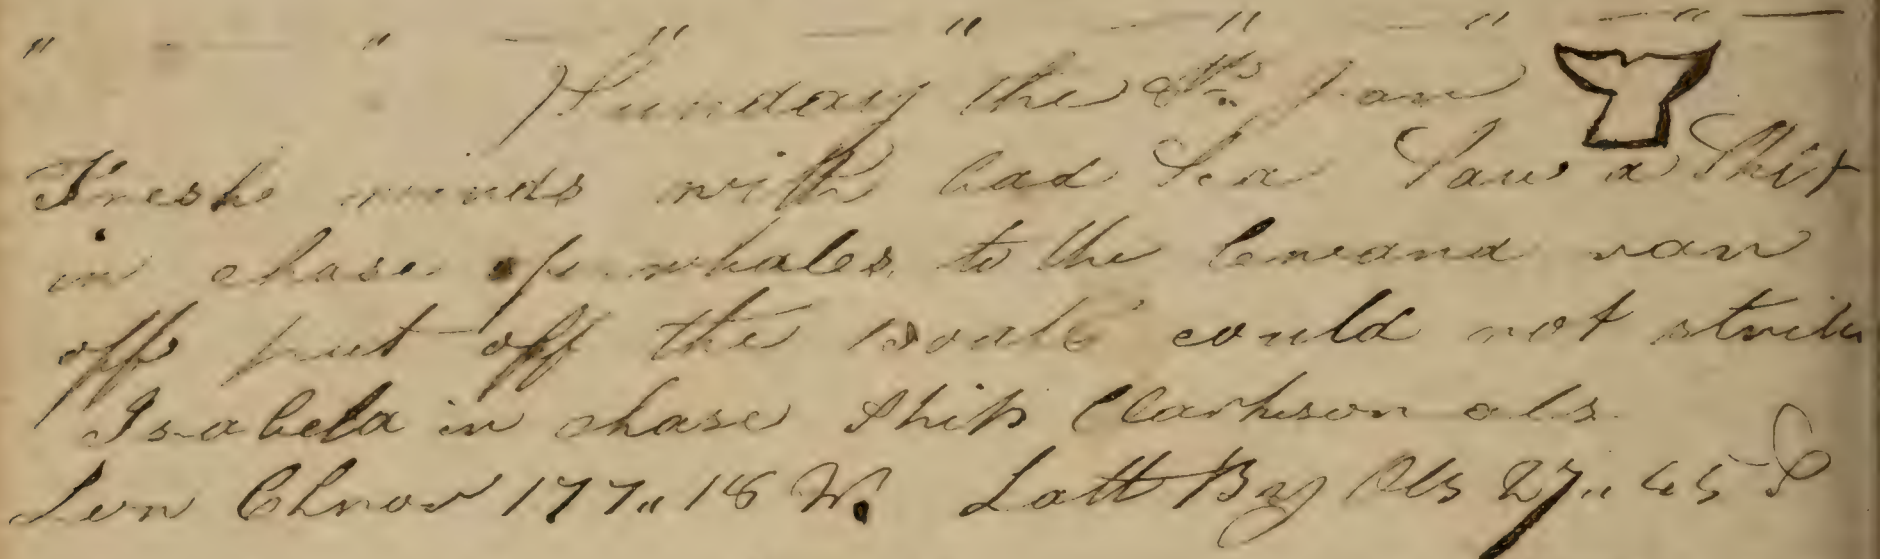 " " " " " " "
Sunday the 8th Jan
Fresh winds with bad Sea Saw a Ship
in chase of whales to the leward ran
off put off the boats could not strike
Isabela in chase Ship Clarkson als
Lon Chron 177" 18 W. Latt By Obs 27" 45 S